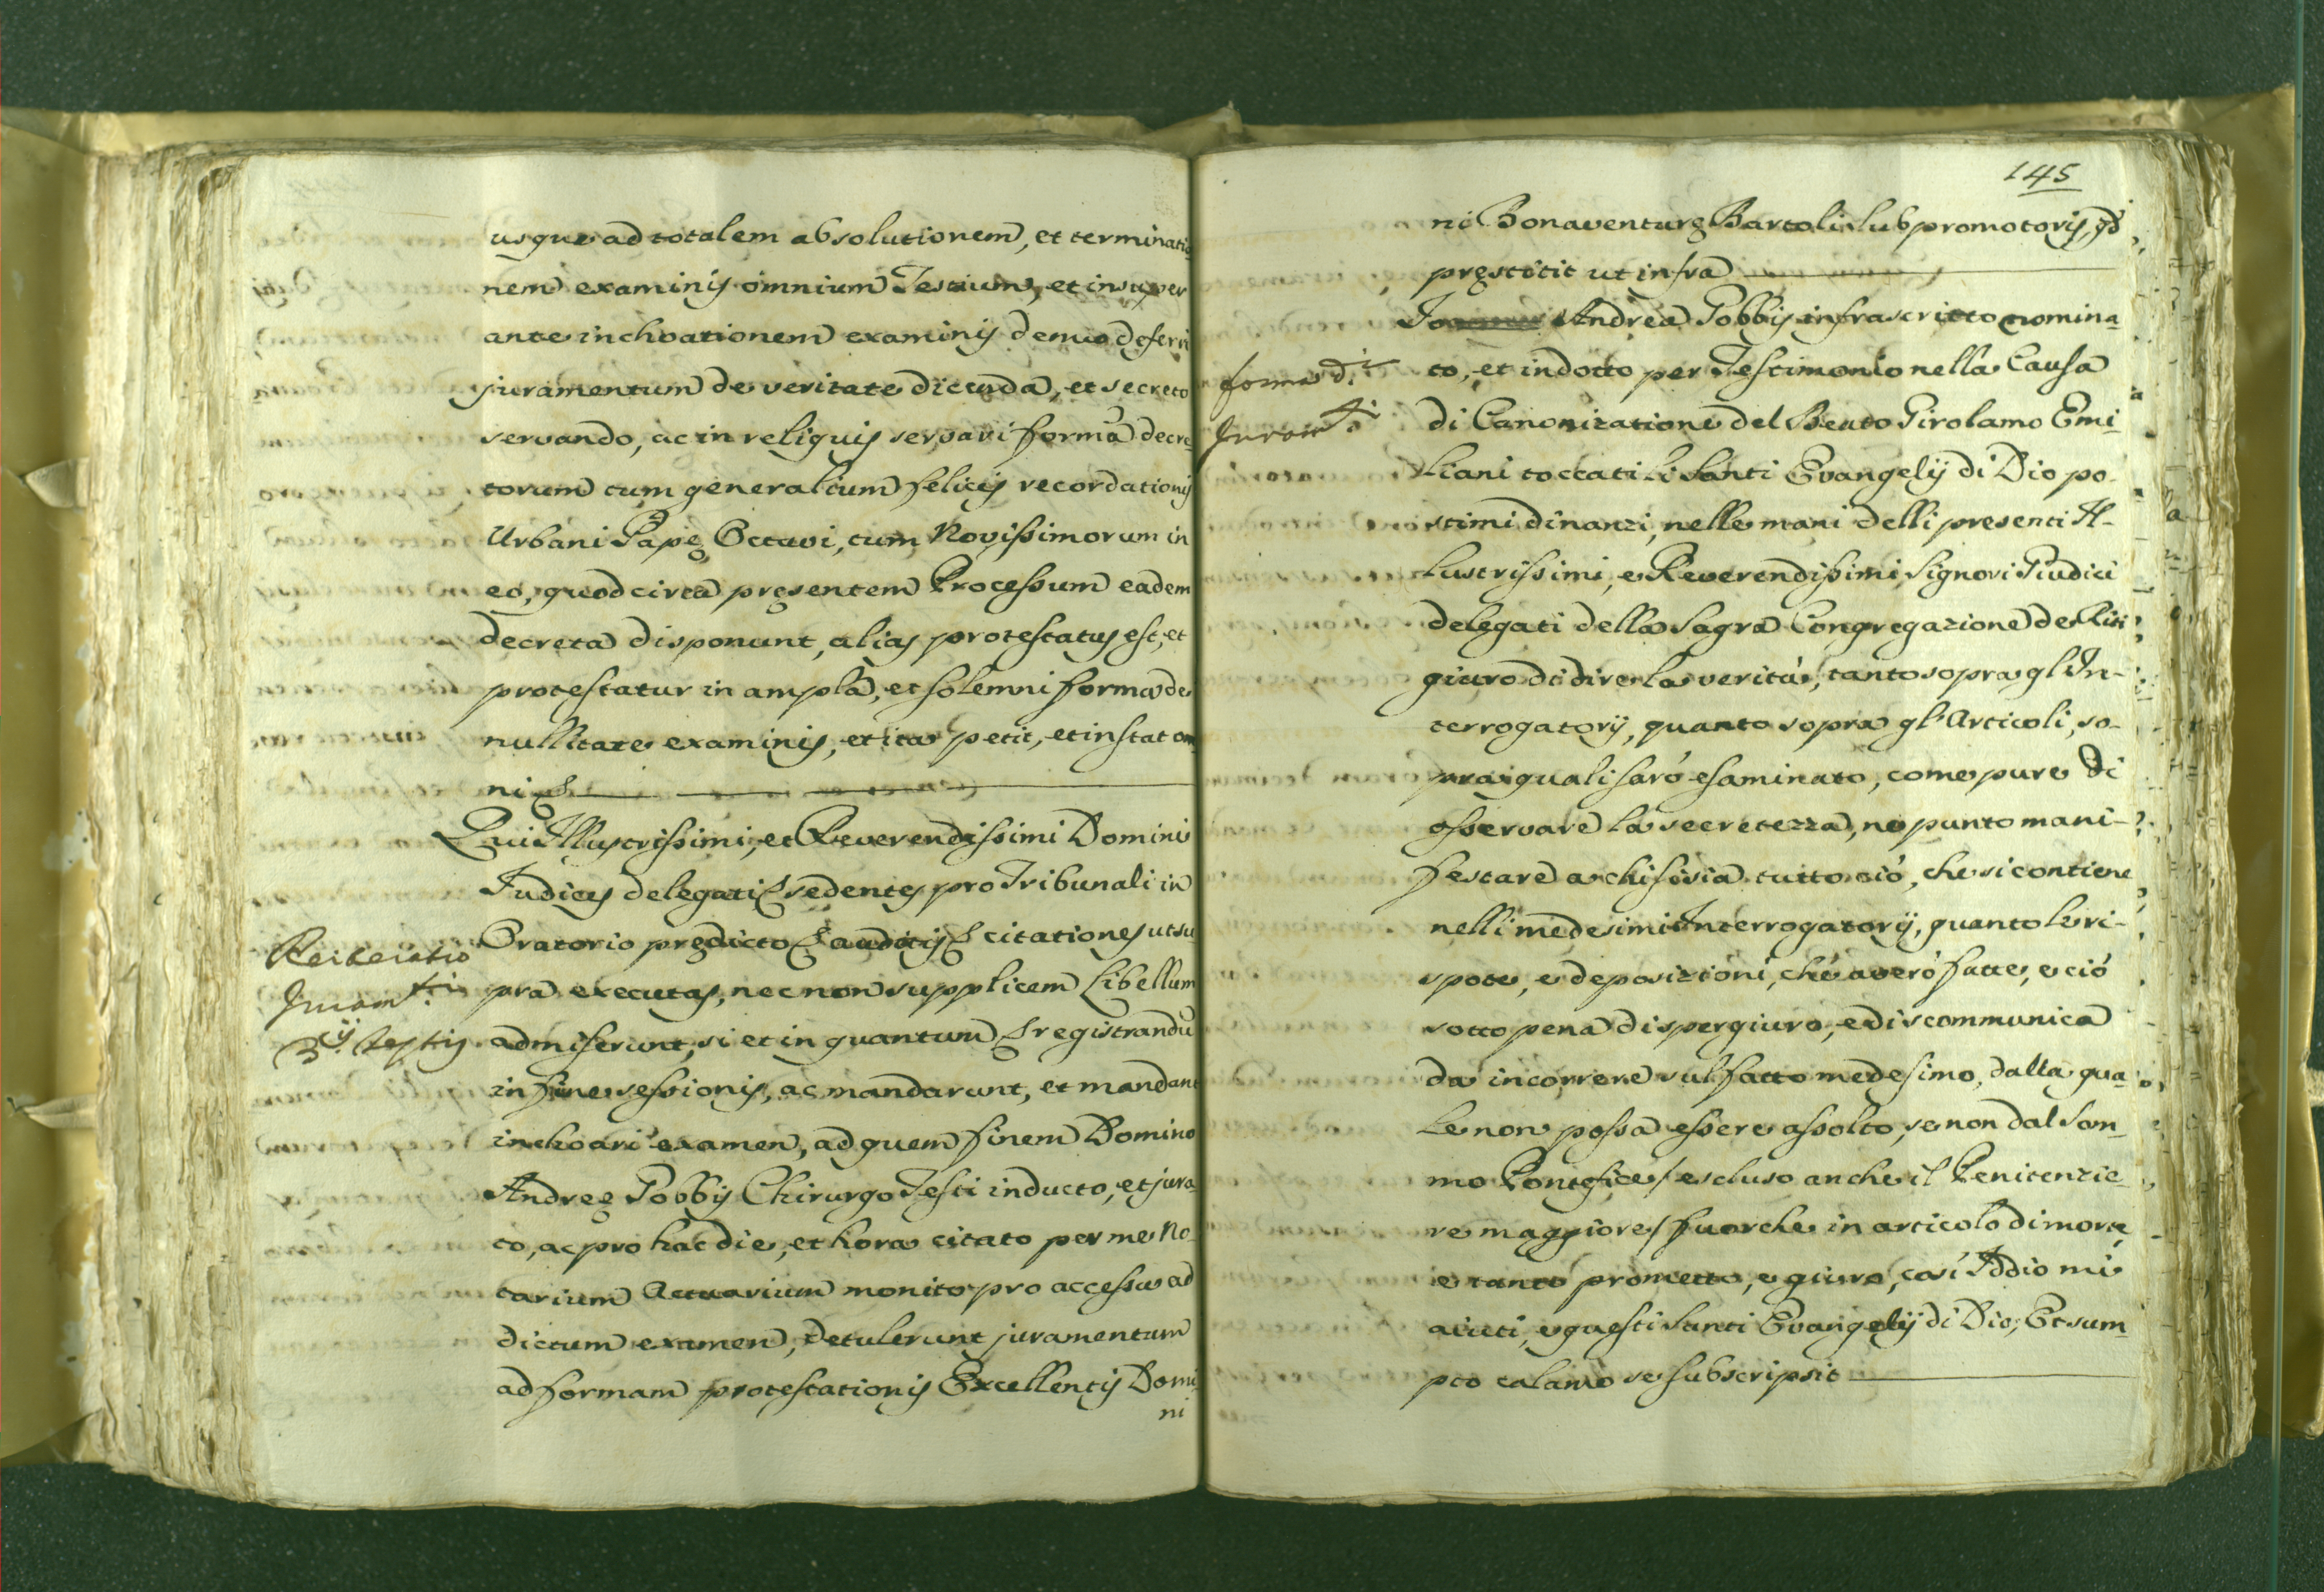 usque ad totalem absolutionem, et terminatio
nem examinis omnium Testium, et insuper
ante inchoationem examinis denuo deferri
juramentum de veritate dicenda, et secreto
servando, ac in reliquis servari formà decre
torum tum generalium felicis recordationis
Urbani Papę Octavi, tum Novissimorum in
eo, quod circa pręsentem Processum eadem
decreta disponunt, alias protestatus est, et
protestatur in ampla, et solemni forma de
nullitate examinis, et ita petit, et instat om
ni &
Qui Illustrissimi, et Reverendissimi Domini
Judices delegati & sedentes pro Tribunali in
Oratorio prędicto & auditis & citationes ut su
Reiteratio
Juramti
3ij testis
pra executas, nec non supplicem Libellum
admiserunt, si et in quantum & registrandũ
in fine sessionis, ac mandarunt, et mandant
inchoari examen, ad quem finem Domino
Andreę Gobbij Chirurgo Testi inducto, et jura
to, ac pro hac die, et hora citato per me No-
tarium Actuarium monito pro accessu ad
dictum examen, detulerunt juramentum
ad formam protestationis Excellentis Domi
ni
145
ni Bonaventurę Bartoli Subpromotoris, qd
pręstitit ut infra
Io Andrea Gobbij infrascritto nomina
forma di
Juramti
to, et indotto per Testimonio nella Causa
di Canonizatione del Beato Girolamo Emi
liani toccati li Santi Evangelij di Dio po-
stimi dinanzi, nelle mani delli presenti Il-
lustrissimi, e Reverendissimi Signori Giudici
delegati della Sagra Congregazione de Riti
giuro di dire la verità, tanto sopra gl'In-
terrogatorij, quanto sopra gl'Articoli, so-
pra i quali sarò esaminato, come pure di
osservare la secretezza, ne punto mani-
festare a chi si sia tutto ciò, che si contiene
nelli medesimi Interrogatorij, quanto le ri-
spote, e deposizioni, che averò fatte, e ciò
sotto pena di spergiuro, e di scommunica
da incorrere sul fatto medesimo, dalla qua
le non possa essere assolto, se non dal Som-
mo Pontefice / escluso anche il Penitenzie-
re maggiore / fuorche in articolo di morte
e tanto prometto, e giuro, così Iddio mi
aiuti, e questi Santi Evangelij di Dio; Et sum
pto calamo se subscripsit